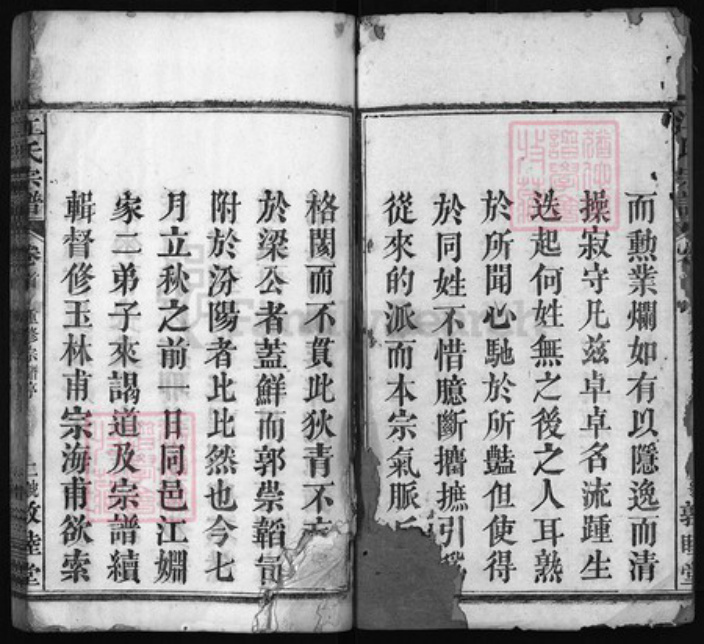 而勳業爛如有以隱逸而清
操寂守凡兹卓卓名流踵生
迭起何姓無之後之人耳熟
於所聞心馳於所豔但使得
於同姓不惜臆斷攟摭引
從來的派而本宗氣脈
格閡而不貫此狄青不
於梁公者蓋鮮而郭崇韜
附於汾陽者比比然也今七
月立秋之前一日同邑江淵
家二弟子來謁道及宗譜續
輯督修玉林甫宗海甫欲索
江氏宗譜
卷首
重修宗譜序
敦睦堂
敦睦堂
FamilySearch